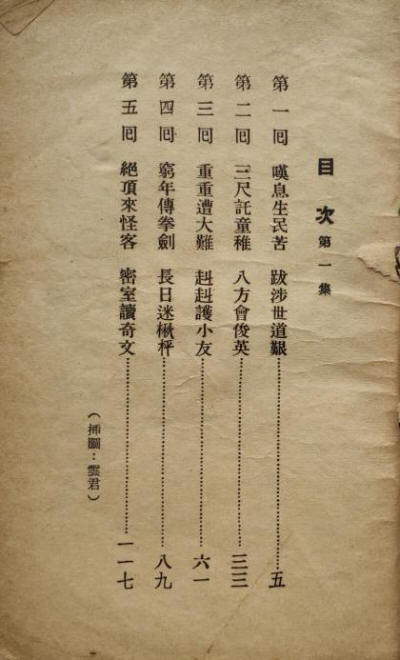 目次 第一集
第一回 嘆息生民苦 跋涉世道艱……五
第二回 三尺託童稚 八方會俊英……三三
第三回 重重遭大難 赳赳護小友……六一
第四回 窮年傳拳劍 長日迷楸枰……八九
第五回 絕頂來怪客 密室讀奇文……一一七
（揷圖：雲君）